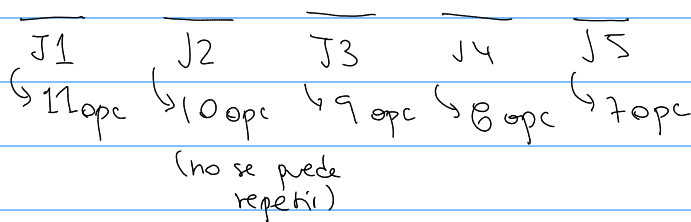 J1 J2 J3 J4 J5
↳ 11 opc ↳ 10 opc ↳ 9 opc ↳ 8 opc ↳ 7 opc
(no se puede
repetir)